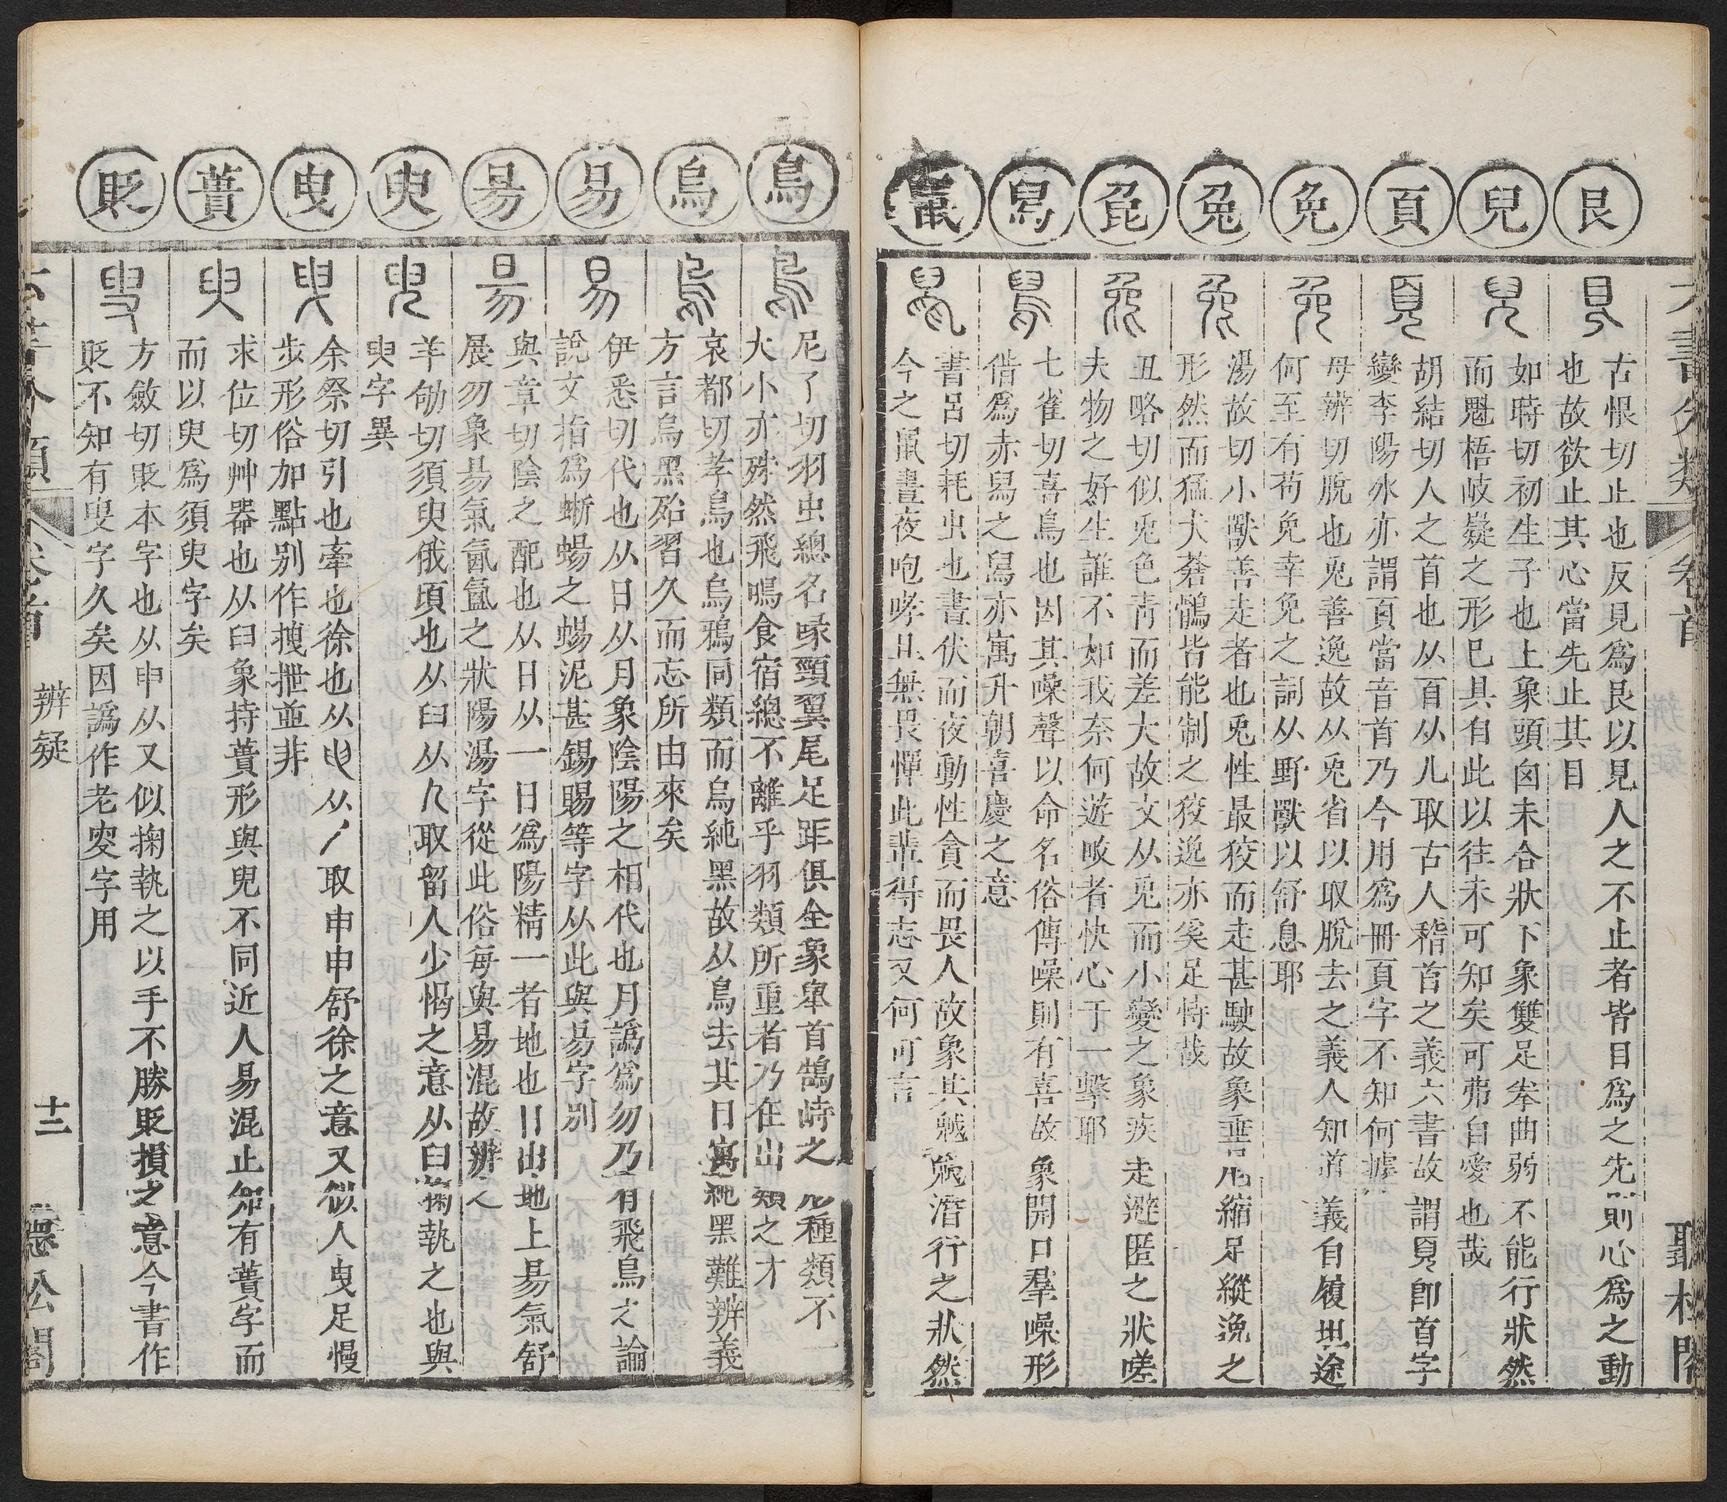 六書分類 卷首 聽松閣
艮
古恨切止也反見爲艮以見人之不止者皆目爲之先則心爲之動
也故欲止其心當先止其目
兒
如時切初生子也上象頭囟未合狀下象雙足拳曲弱不能行狀然
而魁梧岐嶷之形已具有此以往未可知矣可弗自愛也哉
頁
胡結切人之首也从𦣻从儿取古人稽首之義六書故謂𩑋卽首字
變李陽冰亦謂頁當音首乃今用爲冊頁字不知何據
免
毋辨切脫也兎善逸故从兎省以取脫去之義人知道義自履坦途
何至有苟免幸免之詞从野獸以舒息耶
兔
湯故切小獸善走者也兎性最狡而走甚駛故象縮足縱逸之
形然而猛犬蒼鶻皆能制之狡逸亦奚足恃哉
㲋
丑略切似兎色靑而差大故文从兎而小變之象疾走避匿之狀嗟
夫物之好生誰不如我奈何遊畋者快心于一擊耶
舃
七雀切喜鳥也因其噪聲以命名俗傳噪則有喜故象開口羣噪形
借爲赤舃之舃亦寓升朝喜慶之意
鼠
書呂切耗虫也晝伏而夜動性貪而畏人故象其潛行之狀然
今之鼠晝夜咆哮且無畏憚此輩得志又何可言
鳥
尼了切羽虫總名喙頸翼尾足距俱全象舉首鵠峙之形種類不一
大小亦殊然飛鳴食宿總不離乎羽類所重者乃在出類之才
烏
哀都切孝鳥也烏鴉同類而烏純黑故从鳥去其目寓純黑難辨義
方言烏黑殆習久而忘所由來矣
易
伊悉切代也从日从月象陰陽之相代也月譌爲勿乃有飛鳥之論
說文指爲蜥蜴之蜴泥甚錫賜等字从此與昜字別
昜
與章切陰之配也从日从一日爲陽精一者地也日出地上昜氣舒
展勿象昜氣氤氳之狀陽湯字從此俗每與易混故辨之
臾
羊劬切須臾俄頃也从臼从乀取留人少愒之意从臼掬執之也與
㬰字異
曳
余祭切引也牽也徐也从申从丿取申申舒徐之意又似人曳足慢
步形俗加點別作拽抴並非
蕢
求位切艸器也从臼象持蕢形與兒不同近人易混止知有蕢字而
而以臾爲須臾字矣
貶
方斂切貶本字也从申从又似掬執之以手不勝貶損之意今書作
貶不知有𠭥字久矣因譌作老叟字用
六書分類 卷之首 辨疑 十三 聽松閣